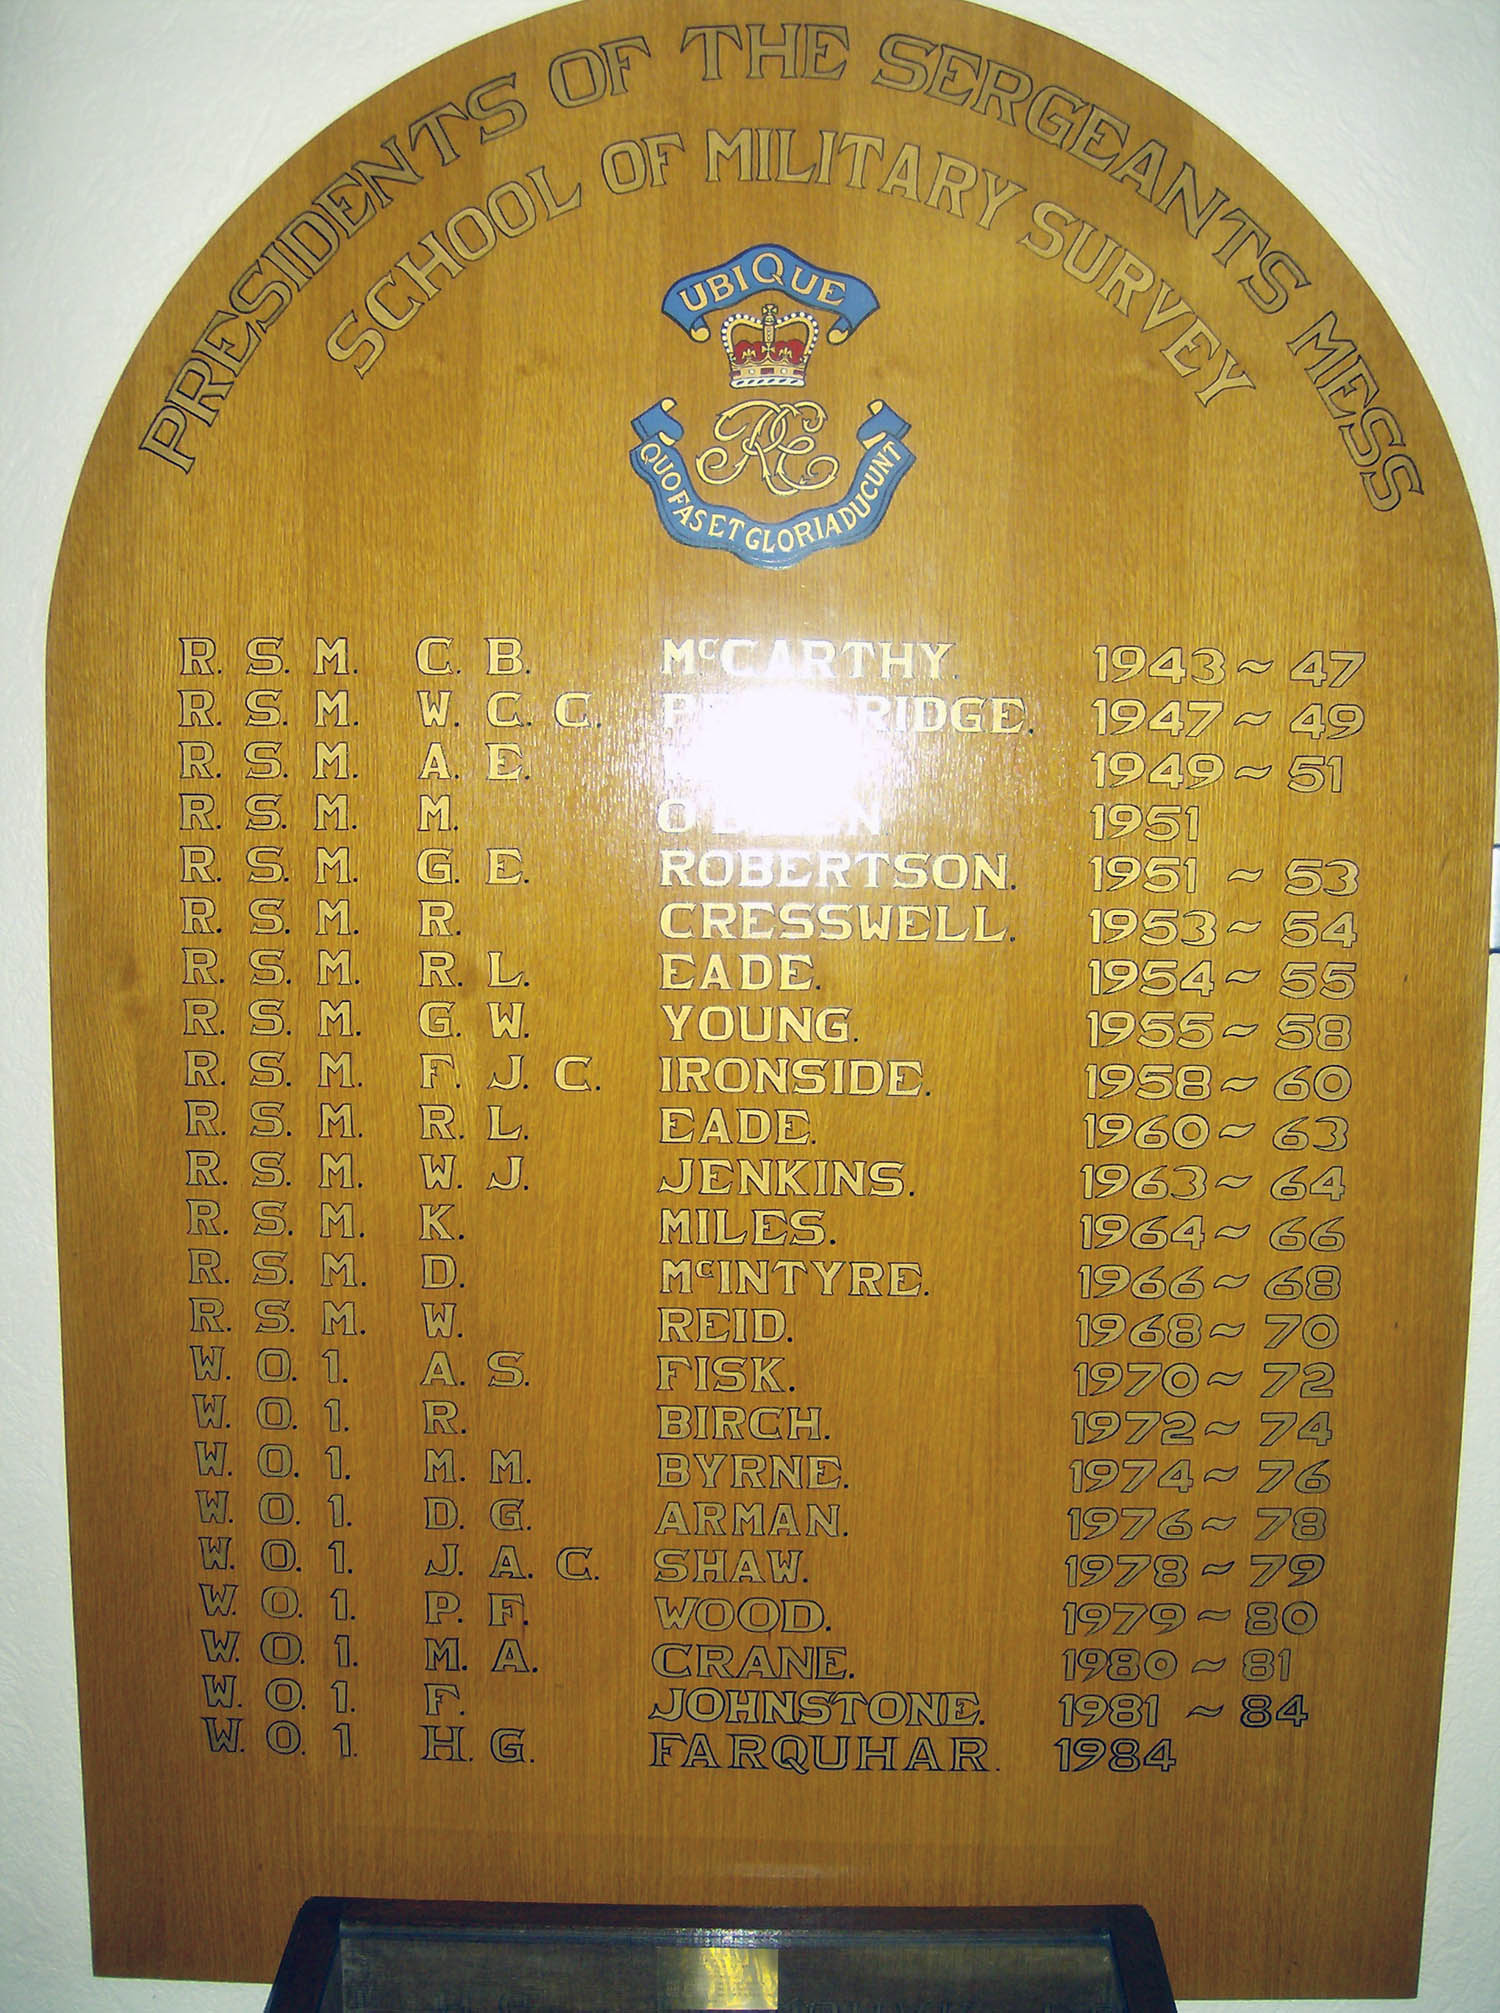 PRESIDENTS OF THE SERGEANTS MESS
SCHOOL OF MILITARY SURVEY
UBIQUE
RE
QUO FAS ET GLORIA DUCUNT
R. S. M. C. B. McCARTHY. 1943~47
R. S. M. W. C. C. 1947~49
R. S. M. A. E. 1949~51
R. S. M. M. 1951
R. S. M. G. E. ROBERTSON. 1951~53
R. S. M. R. CRESSWELL. 1953~54
R. S. M. R. L. EADE. 1954~55
R. S. M. G. W. YOUNG. 1955~58
R. S. M. F. J. C. IRONSIDE. 1958~60
R. S. M. R. L. EADE. 1960~63
R. S. M. W. J. JENKINS. 1963~64
R. S. M. K. MILES. 1964~66
R. S. M. D. McINTYRE. 1966~68
R. S. M. W. REID. 1968~70
W. O. 1. A. S. FISK. 1970~72
W. O. 1. R. BIRCH. 1972~74
W. O. 1. M. M. BYRNE. 1974~76
W. O. 1. D. G. ARMAN. 1976~78
W. O. 1. J. A. C. SHAW. 1978~79
W. O. 1. P. F. WOOD. 1979~80
W. O. 1. M. A. CRANE. 1980~81
W. O. 1. F. JOHNSTONE. 1981~84
W. O. 1. H. G. FARQUHAR. 1984